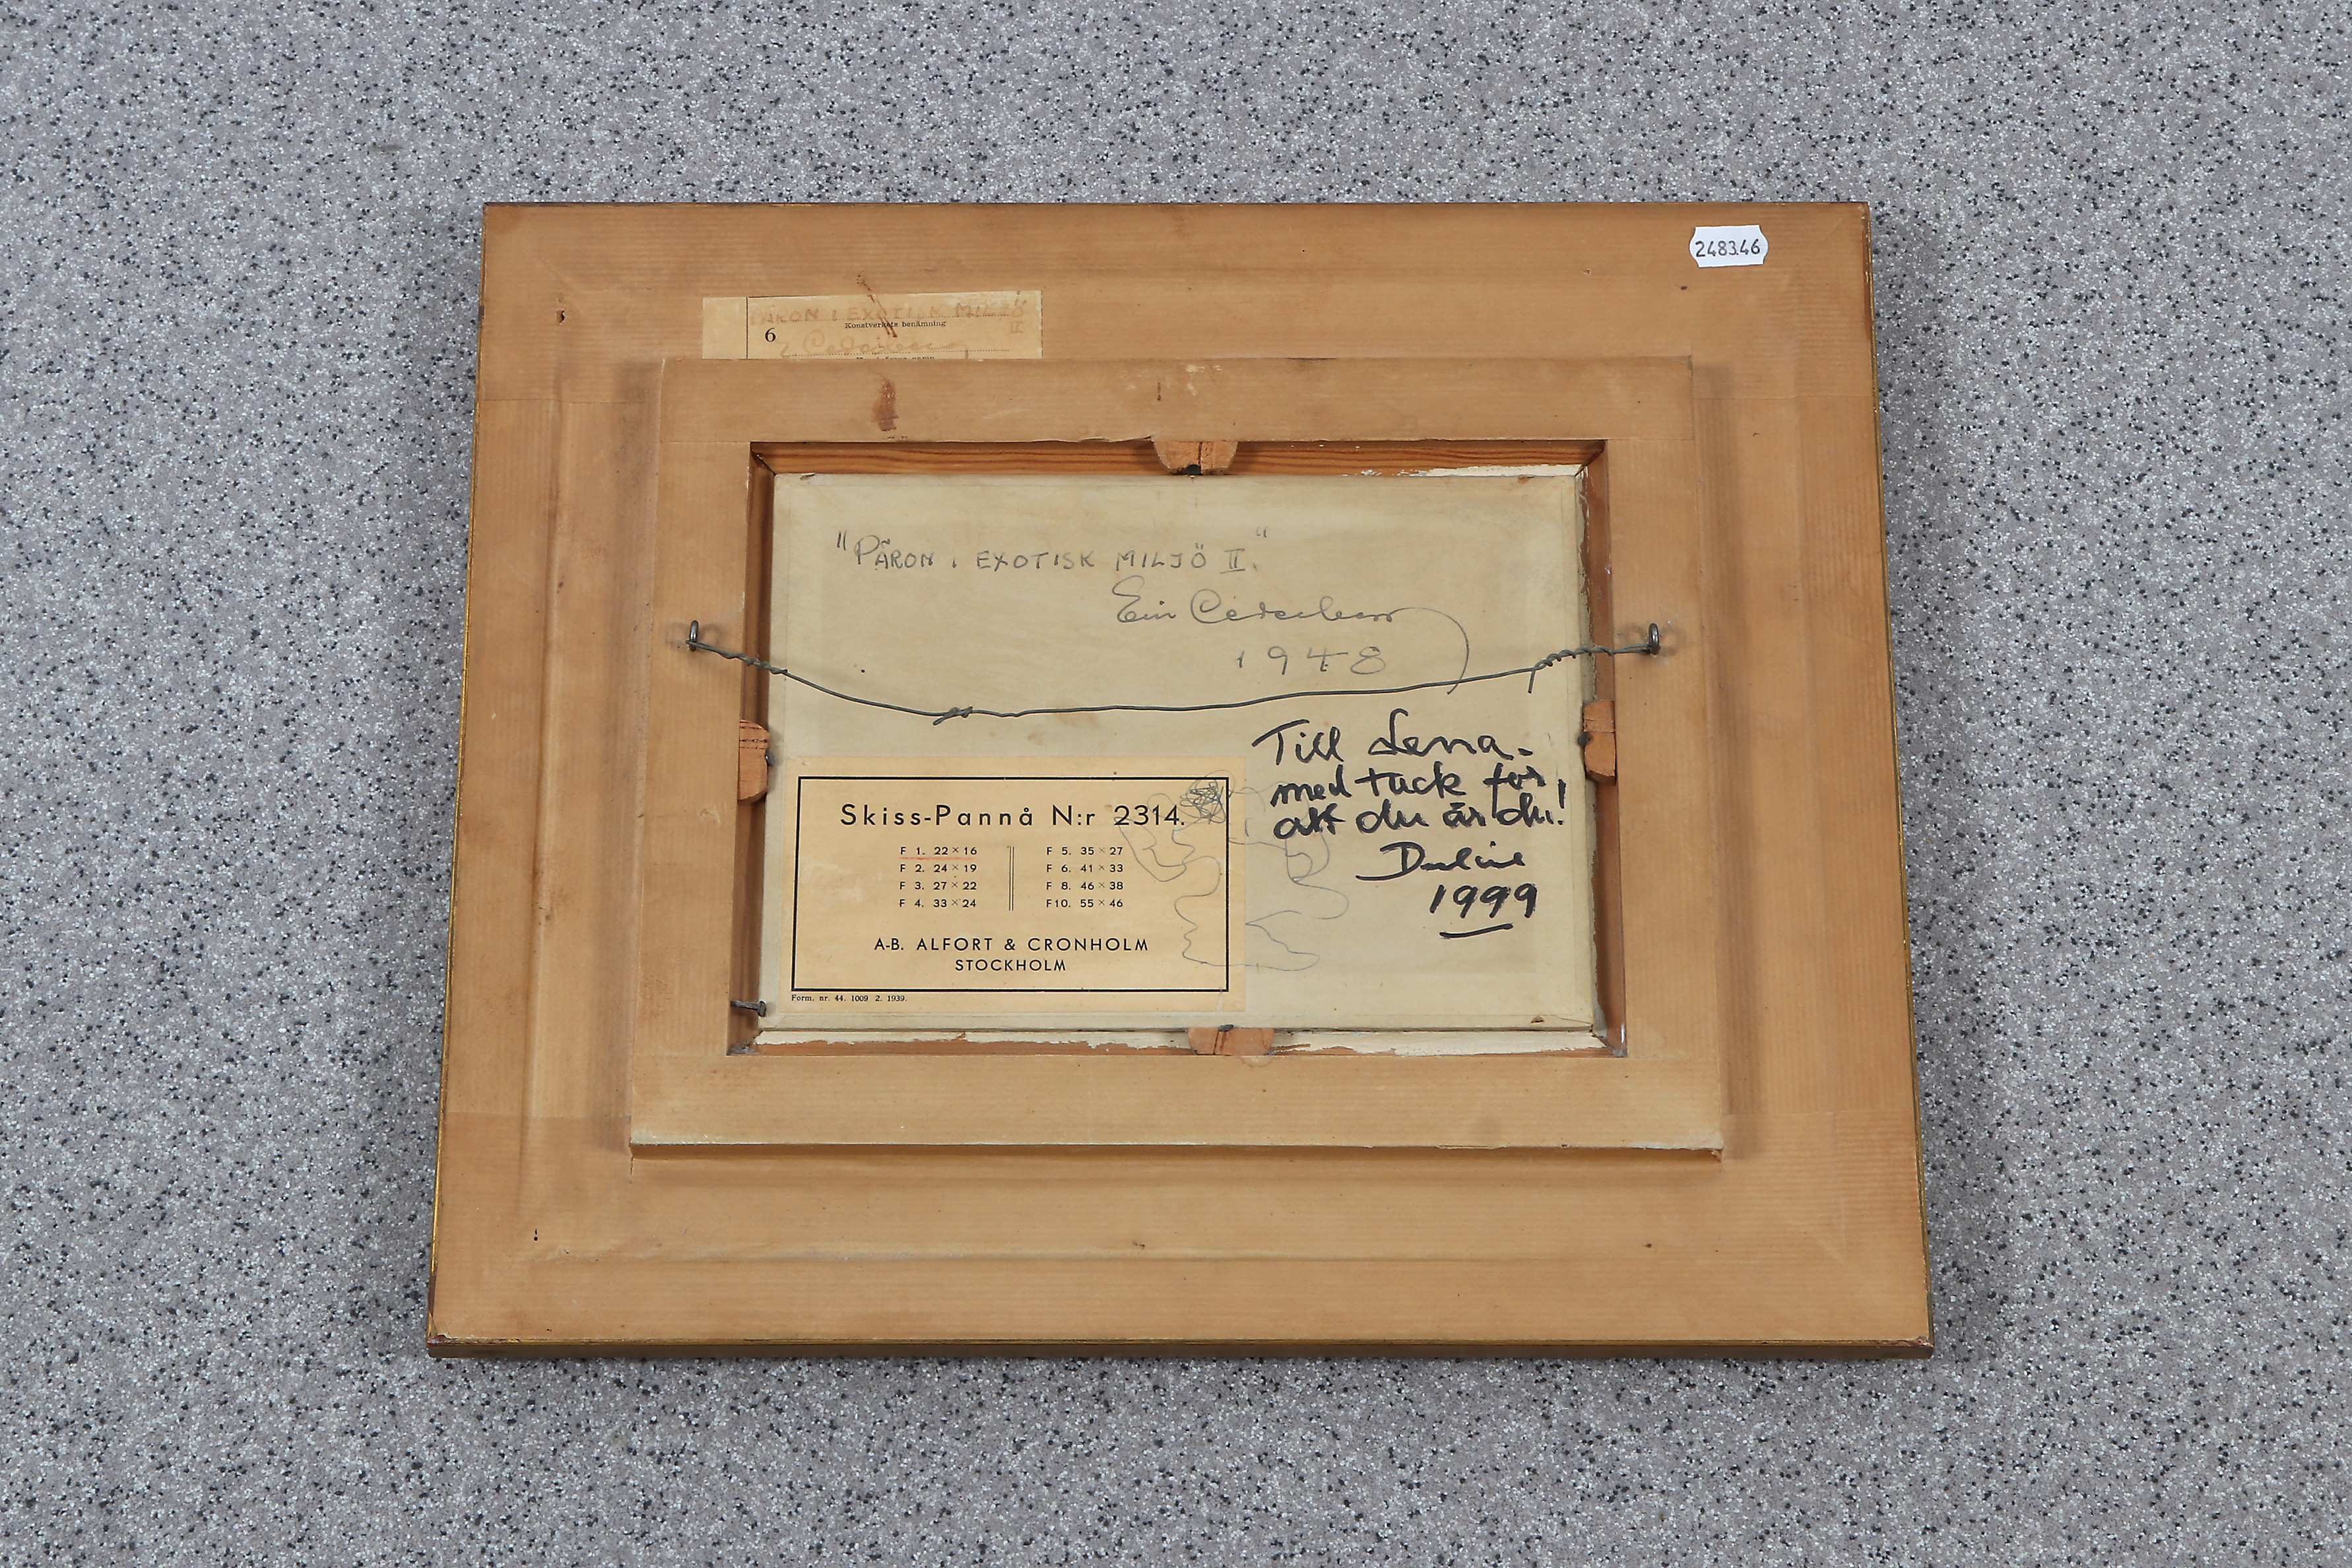 248346
PÄRON I EXOTISK MILJÖ
II
6
Konstverkets benämning
"PÄRON I EXOTISK MILJÖ II"
1948
Till Lena-
med tack för
att du är du!
1999
Skiss-Pannå N:r 2314.
F 1. 22×16
F 2. 24×19
F 3. 27×22
F 4. 33×24
F 5. 35×27
F 6. 41×33
F 8. 46×38
F10. 55×46
A-B. ALFORT & CRONHOLM
STOCKHOLM
Form. nr. 44. 1009 2. 1939.